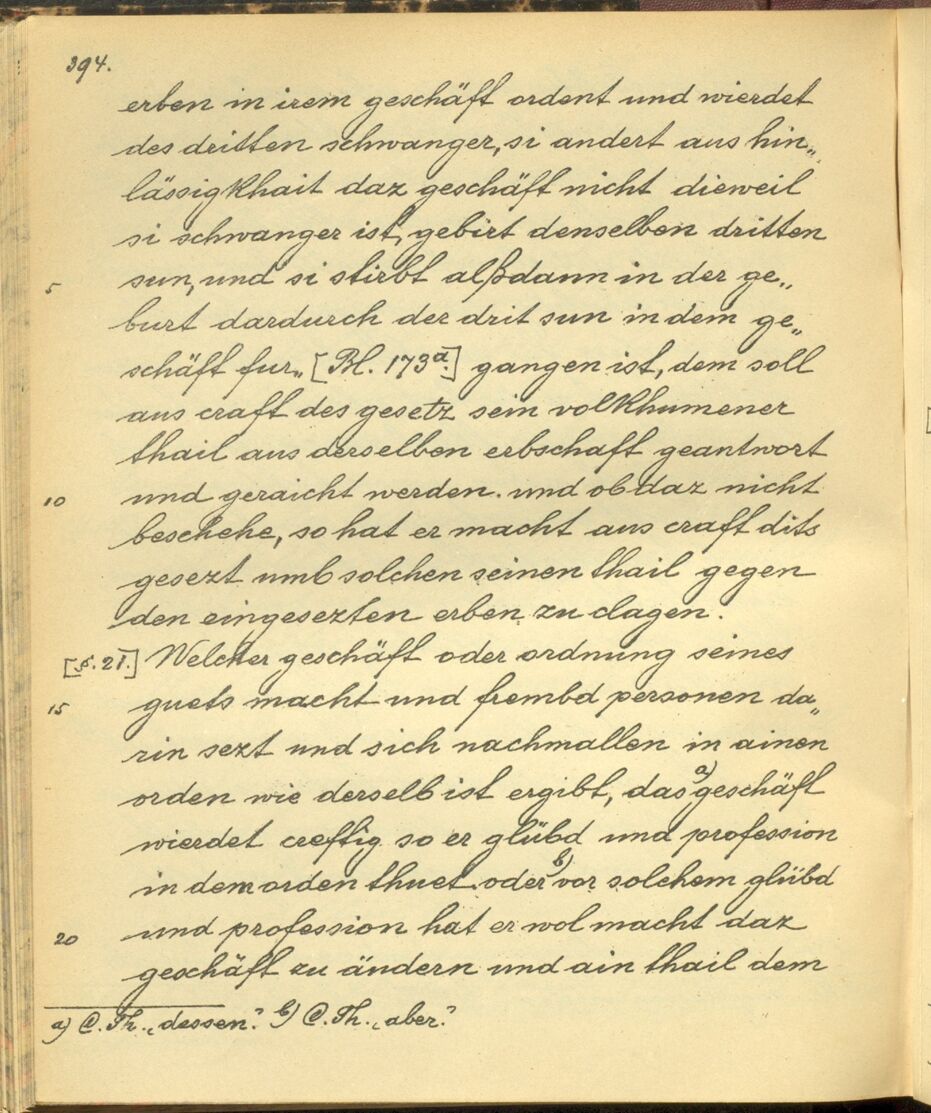 394.
erben in irem geschäft ordent und wierdet
des dritten schwanger, si andert aus hin„
lässigkhait daz geschäft nicht dieweil
si schwanger ist, gebirt denselben dritten
5 sun, und si stirbt alßdann in der ge„
burt dardurch der drit sun in dem ge„
schäft fur„ [Bl. 173a.] gangen ist, dem soll
aus craft des gesetz sein volkhumener
thail aus derselben erbschaft geantwort
10 und geraicht werden. und ob daz nicht
beschehe, so hat er macht aus craft dits
gesezt umb solchen seinen thail gegen
den eingesezten erben zu clagen.
[§. 21.] Welcher geschäft oder ordnung seines
15 guets macht und frembd personen da„
rin sezt und sich nachmallen in ainen
orden wie derselb ist ergibt, das a) geschäft
wierdet creftig so er glübd und profession
in dem orden thuet. oder b) vor solchem glübd
20 und profession hat er wol macht daz
geschäft zu ändern und ain thail dem
a) C. Th. „dessen". b) C. Th. „aber".